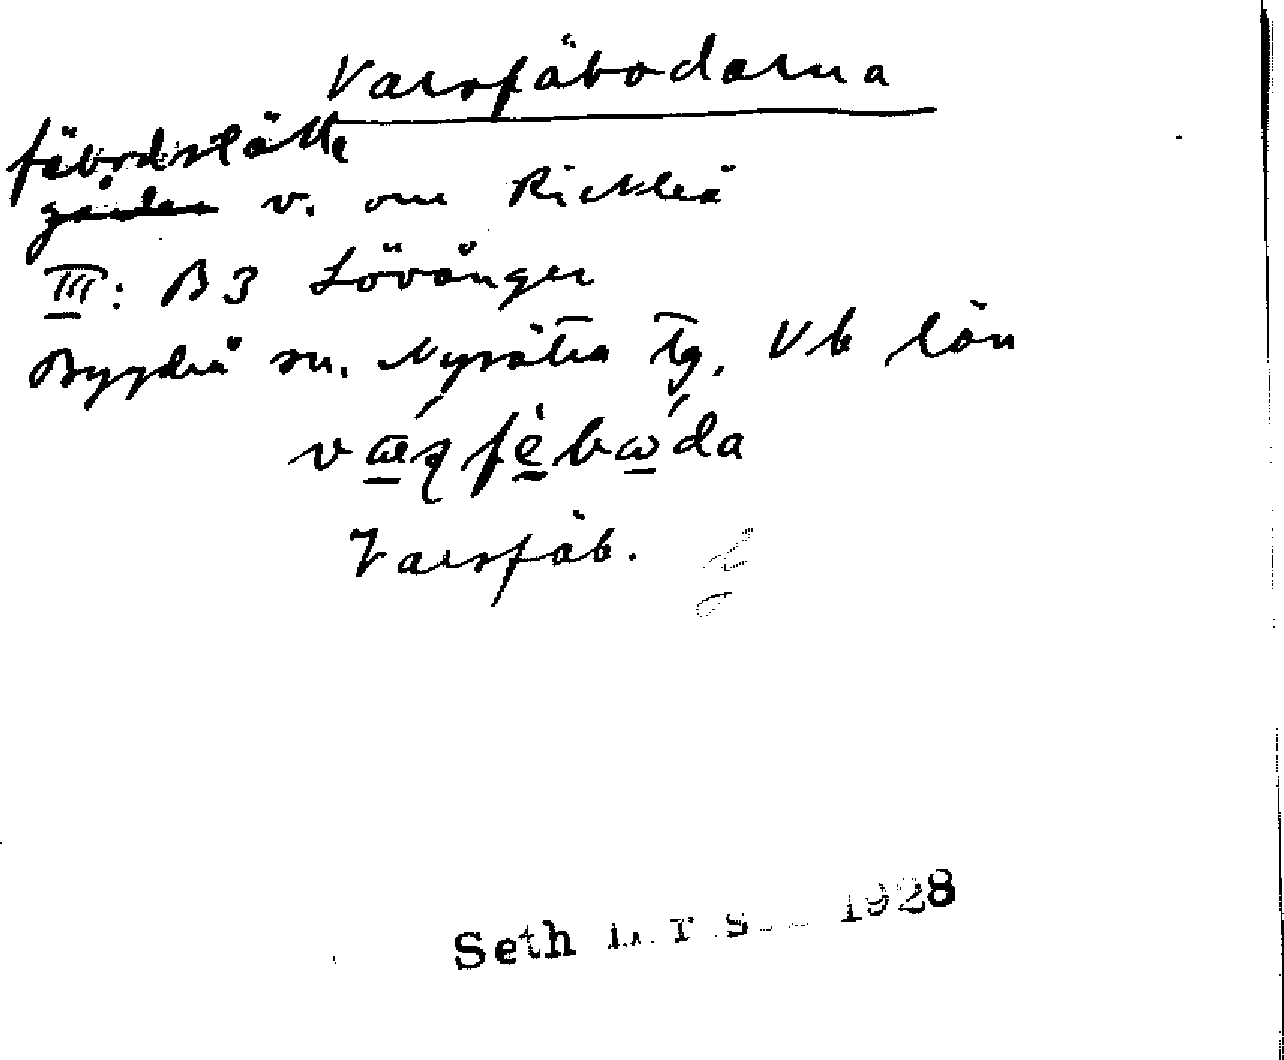 Varsfäbodarna
fäbodställe
gården v. om Rickleå
III: B3 Lövånger
Bygdeå sn. Nysätra tg. Vb län
Varsfäb.
Seth 1928